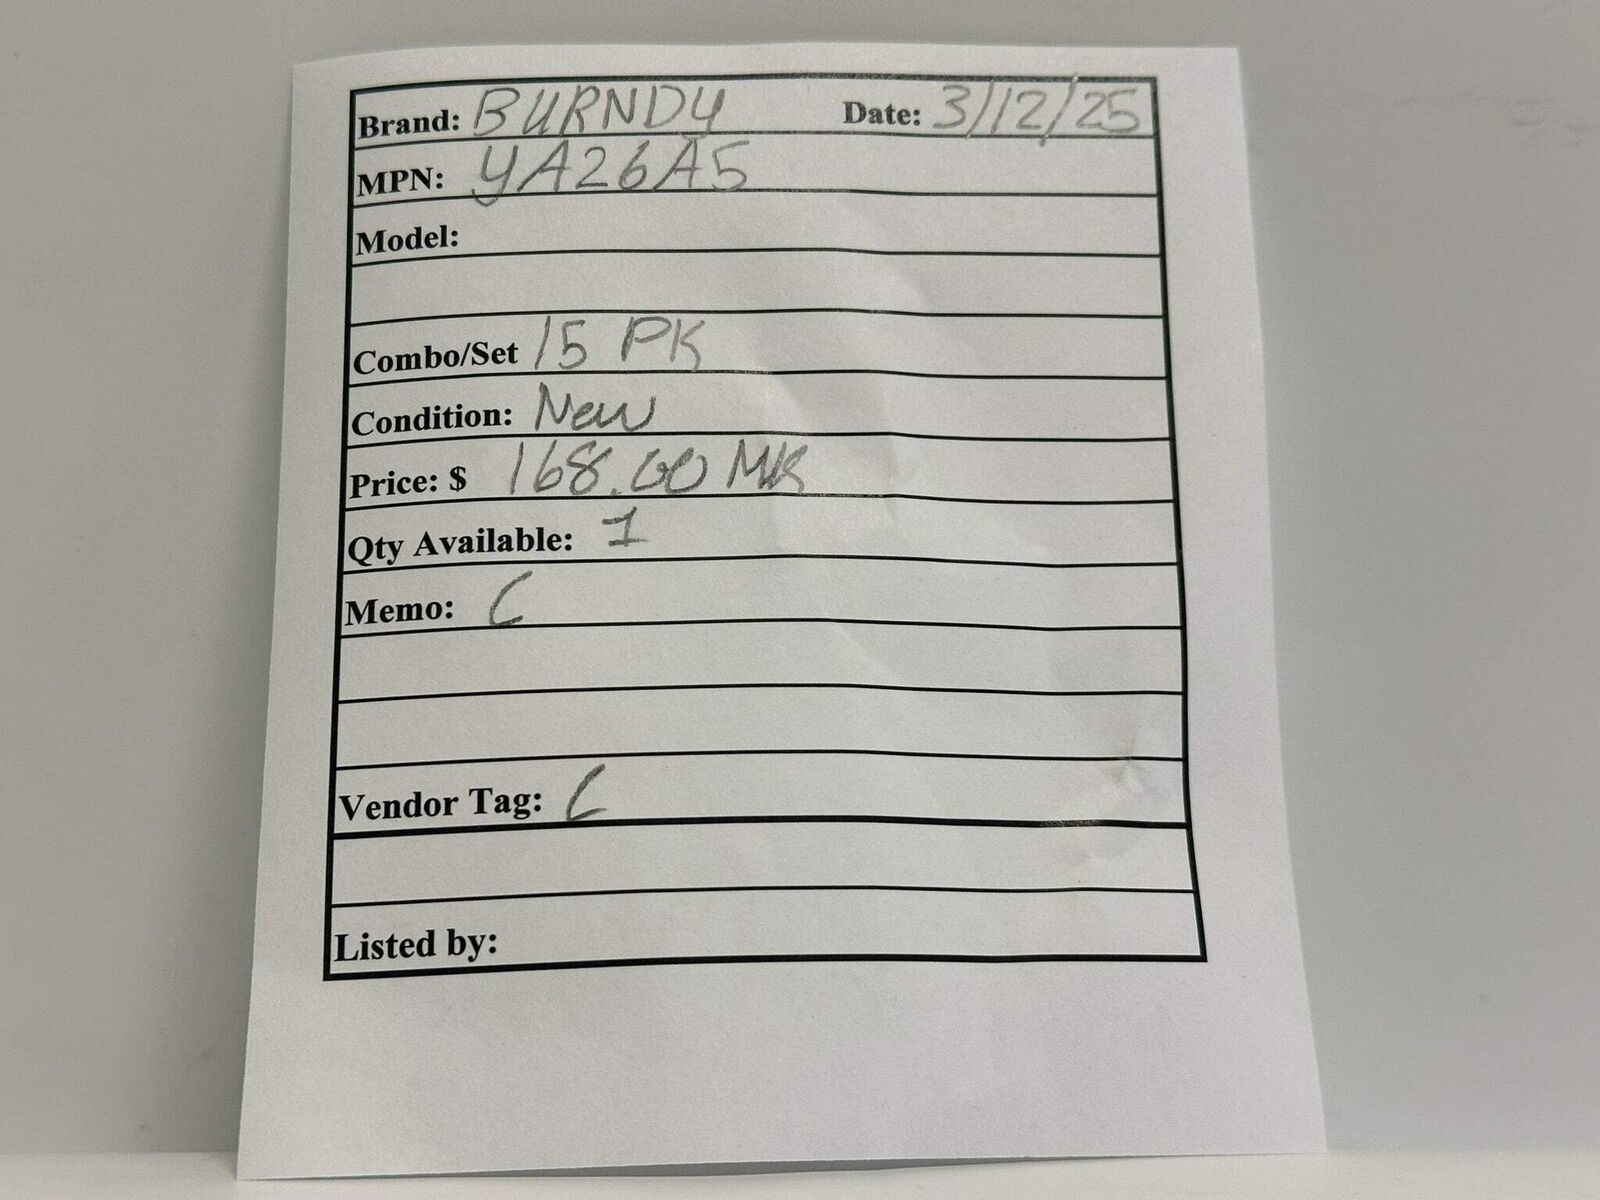 Brand: BURNDY Date: 3/12/25
MPN: YA26A5
Model:
Combo/Set 15 PK
Condition: New
Price: $ 168.00 MK
Qty Available: 1
Memo: C
Vendor Tag: C
Listed by: